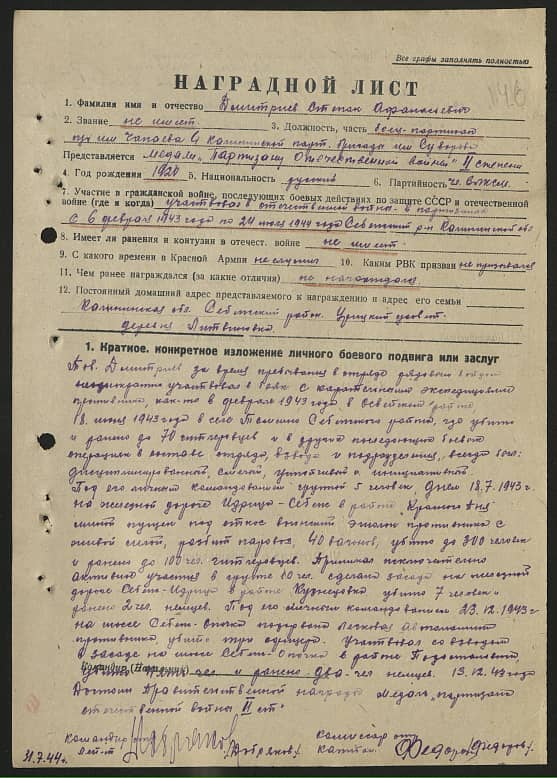 Все графы заполнять полностью
НАГРАДНОЙ ЛИСТ
1. Фамилия имя и отчество Дмитриев Степан Афанасьевич
2. Звание не имеет 3. Должность, часть
им Чапаева 4 Калининской парт. бригады им Суворова
Представляется медаль „Партизану Отечественной войны" II степени
4. Год рождения 1920 5. Национальность русский 6. Партийность чл. ВЛКСМ.
7. Участие в гражданской войне, последующих боевых действиях по защите СССР и отечественной
войне (где и когда) участвовал в отечественной войне в партизанах
с 6 февраля 1943 года по 24 июля 1944 года Себежский р-н Калининской обл
8. Имеет ли ранения и контузии в отечест. войне не имеет
9. С какого времени в Красной Армии не служил 10. Каким РВК призван не призывался
11. Чем ранее награждался (за какие отличия) не награждался
12. Постоянный домашний адрес представляемого к награждению и адрес его семьи
Калининская обл. Себежский район.
деревня Литвиновка.
1. Краткое, конкретное изложение личного боевого подвига или заслуг
Тов. Дмитриев за время пребывания в отряде рядовым бойцом
неоднократно участвовал в боях с карательными экспедициями
противника, как-то в феврале 1943 года в Освейском районе
18. июня 1943 года в село Томсино Себежского района, где убито
и ранено до 70 гитлеровцев и в других последующих боевых
операциях в составе отряда, взвода и подразделения, всегда был:
дисциплинированной, смелой, и инициативный.
Под его личным командованием группой 5 человек днем 18.7.1943 г.
на железной дороге Идрица-Себеж в районе
пущен под откос воинский эшелон противника с
живой силой, разбит паровоз, 40 вагонов, убито до 300 человек
и ранено до 100 чел. гитлеровцев. Принимал исключительно
активное участия в группе 60 чел. сделали засаду на железной
дороге Себеж-Идрица в районе Кузнецовка убито 7 человек и
ранено 2 чел. немцев. Под его личным командованием 23.12.1943 г
на шоссе Себеж-Опочка подорвана легковая автомашина
противника, убито три офицера. Участвовал со взводом
в засаде на шоссе Себеж-Опочка в районе
Командир (Начальник)
убито чел и ранено два чел немцев. 13.12.43 года
Достоин Правительственной награды медаль „партизан
отечественной войны II ст"
Командир отр.
лей-т
Комиссар отр
Капитан Федоров
31.7.44 г.